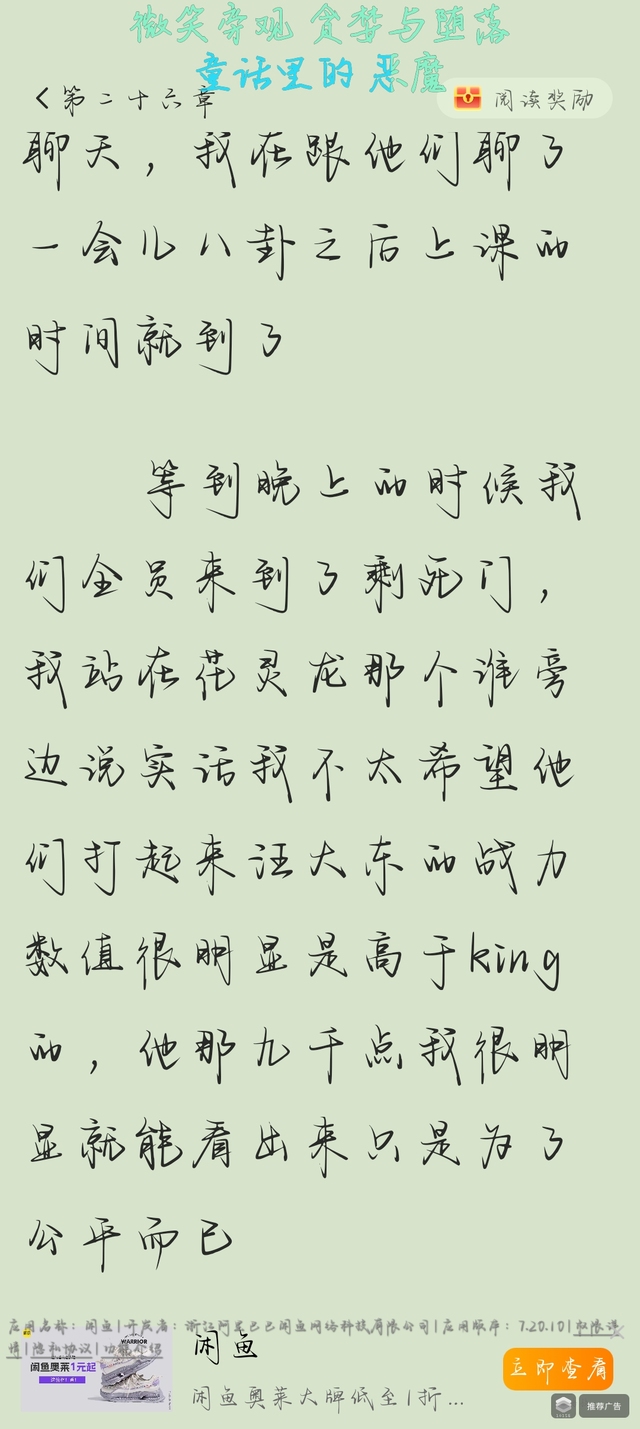 微笑旁观 贪婪与堕落
童话里的 恶魔
第二十六章
阅读奖励
聊天，我在跟他们聊了
一会儿八卦之后上课的
时间就到了
等到晚上的时候我
们全员来到了剩死门，
我站在花灵龙那个谁旁
边说实话我不太希望他
们打起来汪大东的战力
数值很明显是高于king
的，他那九千点我很明
显就能看出来只是为了
公平而已
应用名称：闲鱼|开发者：浙江阿里巴巴闲鱼网络科技有限公司|应用版本：7.20.10|权限详
情|隐私协议|功能介绍
WARRIOR
闲鱼奥莱1元起
闲鱼
闲鱼奥莱大牌低至1折...
立即查看
推荐广告